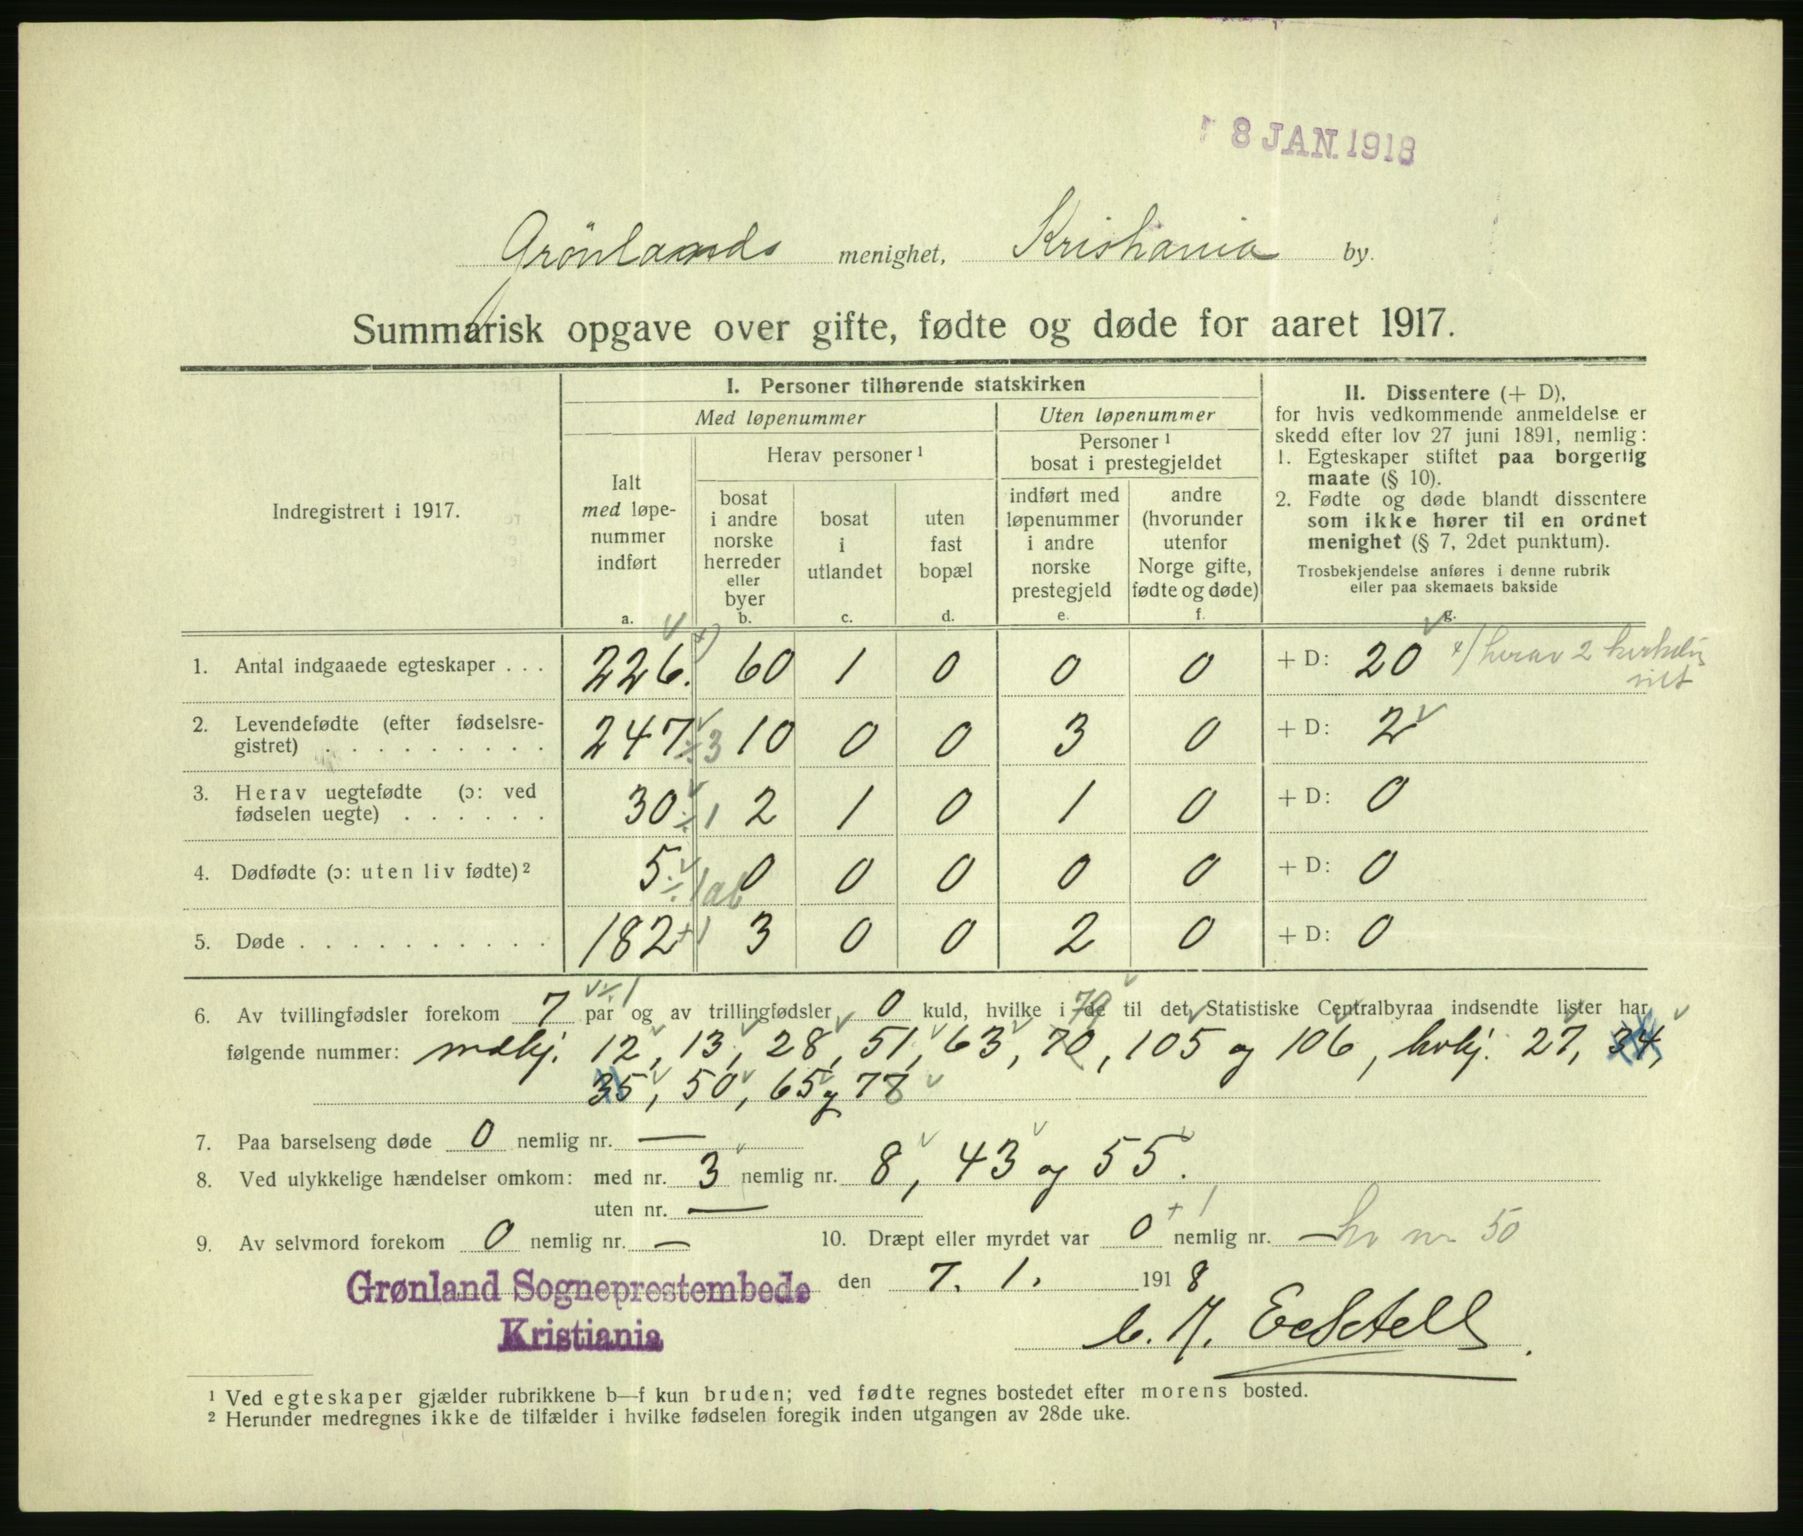 8 JAN. 1918
Grönlands menighet, Kristiania by.
Summarisk opgave over gifte, fødte og døde for aaret 1917.
Indregistrert i 1917.
I. Personer tilhørende statskirken
Med løpenummer
Uten løpenummer
Ialt
med løpe-
nummer
indført
a.
Herav personer ¹
bosat
i andre
norske
herreder
eller
byer
b.
bosat
i
utlandet
c.
uten
fast
bopæl
d.
Personer ¹
bosat i prestegjeldet
indført med
løpenummer
i andre
norske
prestegjeld
e.
andre
(hvorunder
utenfor
Norge gifte,
fødte og døde)
f.
II. Dissentere (+ D),
for hvis vedkommende anmeldelse er
skedd efter lov 27 juni 1891, nemlig:
1. Egteskaper stiftet paa borgerlig
maate (§ 10).
2. Fødte og døde blandt dissentere
som ikke hører til en ordnet
menighet (§ 7, 2det punktum).
Trosbekjendelse anføres i denne rubrik
eller paa skemaets bakside
g.
1. Antal indgaaede egteskaper . . . 226. +) 60 1 0 0 0 + D: 20 +) herav 2 kirkelig
viet
2. Levendefødte (efter fødselsre-
gistret) . . . . . . . . . 247 ÷3 10 0 0 3 0 + D: 2
3. Herav uegtefødte (ɔ: ved
fødselen uegte) . . . . . . 30 ÷1 2 1 0 1 0 + D: 0
4. Dødfødte (ɔ: uten liv fødte) ² 5 ÷1 ab 0 0 0 0 0 + D: 0
5. Døde . . . . . . . . . . 182 +1 3 0 0 2 0 + D: 0
6. Av tvillingfødsler forekom 7 ÷1 par og av trillingfødsler 0 kuld, hvilke i de til det Statistiske Centralbyraa indsendte lister har
følgende nummer: mdkj. 12, 13, 28, 51, 63, 70, 105 og 106, kvkj. 27, 34,
35, 50, 65 og 78
7. Paa barselseng døde 0 nemlig nr. —
8. Ved ulykkelige hændelser omkom: med nr. 3 nemlig nr. 8, 43 og 55.
uten nr. —
9. Av selvmord forekom 0 nemlig nr. — 10. Dræpt eller myrdet var 0 +1 nemlig nr. — kv nr 50
Grønland Sogneprestembede den 7. 1. 1918
Kristiania
¹ Ved egteskaper gjælder rubrikkene b—f kun bruden; ved fødte regnes bostedet efter morens bosted.
² Herunder medregnes ikke de tilfælder i hvilke fødselen foregik inden utgangen av 28de uke.